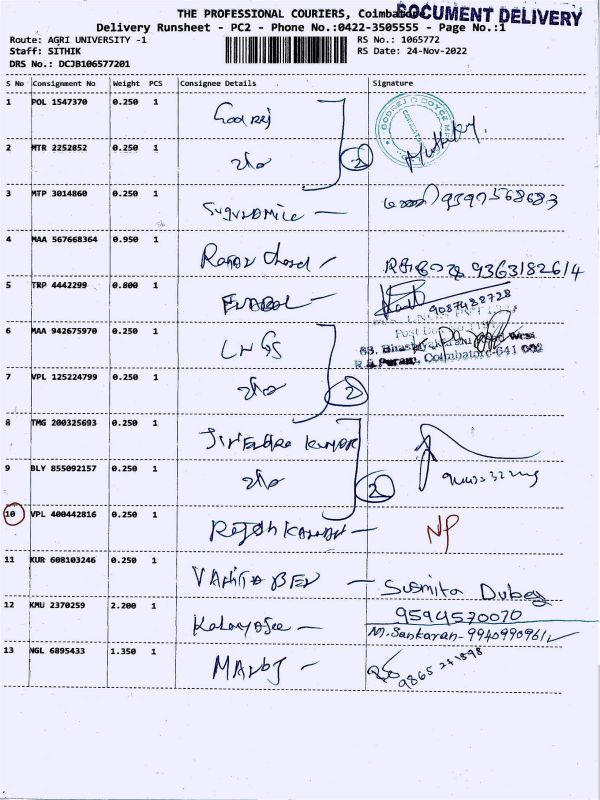 THE PROFESSIONAL COURIERS, Coimbatore
DOCUMENT DELIVERY
Delivery Runsheet - PC2 - Phone No.:0422-3505555 - Page No.:1
Route: AGRI UNIVERSITY -1 RS No.: 1065772
Staff: SITHIK RS Date: 24-Nov-2022
DRS No.: DCJB106577201
S No Consignment No Weight PCS Consignee Details Signature
1 POL 1547370 0.250 1 Godrej
GODREJ & BOYCE
2 MTR 2252852 0.250 1 2
Muthu
3 MTP 3014860 0.250 1 9597568683
4 MAA 567668364 0.950 1 9363182614
5 TRP 4442299 0.800 1
9087488728
6 MAA 942675970 0.250 1 LNGS
68. Bhashyakaralu Road West
R.S Puram, Coimbatore-641 002
7 VPL 125224799 0.250 1 2
8 TMG 200325693 0.250 1 Jitendra Kumar
9 BLY 855092157 0.250 1 2
10 VPL 400442816 0.250 1 Rajesh Kannan NP
11 KUR 608103246 0.250 1 Susmita Dubey
9594570070
12 KMU 2370259 2.200 1 M. Sankaran- 9940990961
13 NGL 6895433 1.350 1 MANOJ
9865241898